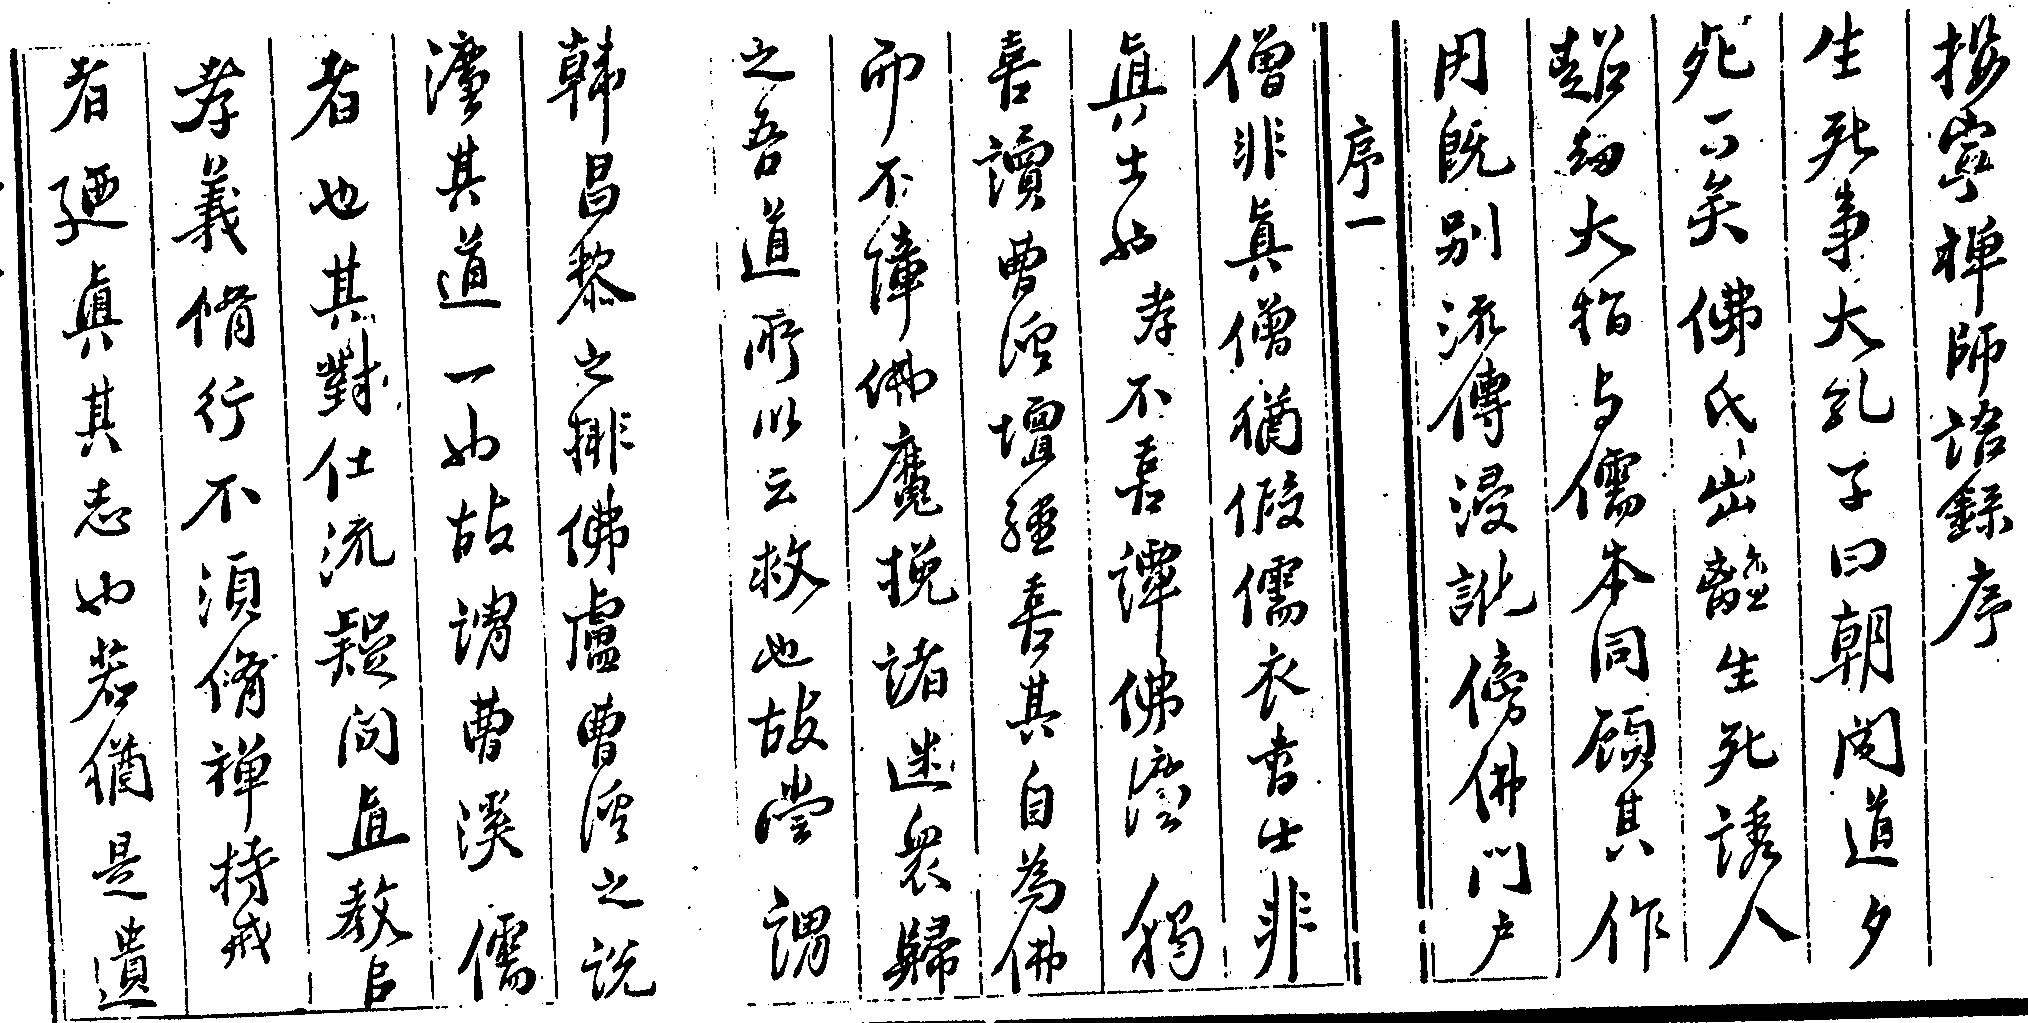 按寧禪師語錄序
生死事大孔子曰朝聞道夕
死可矣佛氏出離生死誘人
超劫大指与儒本同顧其作
用既別流傳浸訛傍佛門戶
序一
僧非真僧猶假儒衣書士非
真士也李不喜譚佛濟獨
喜讀曹溪壇經喜其自為佛
而不障佛魔挽諸迷衆歸
之吾道所以云救也故嘗謂
韓昌黎之排佛盧曹溪之說
濟其道一也故謂曹溪儒
者也其對仕流疑問直教以
孝義修行不須修禪持戒
者更真其志也若猶是遺